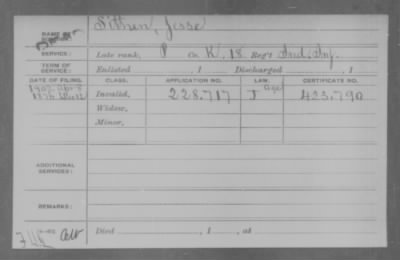 NAME OF SOLDIER: Sithen, Jesse
SERVICE: Late rank, P Co. K, 18 Reg't Ind. Inf.
TERM OF SERVICE: Enlisted , 1 Discharged , 1
DATE OF FILING. CLASS. APPLICATION NO. LAW. CERTIFICATE NO.
1907 Apr 8 Age
1876 Invalid, 228.717 J 423.790
Widow,
Minor,
ADDITIONAL SERVICES:
REMARKS:
Died , 1 , at